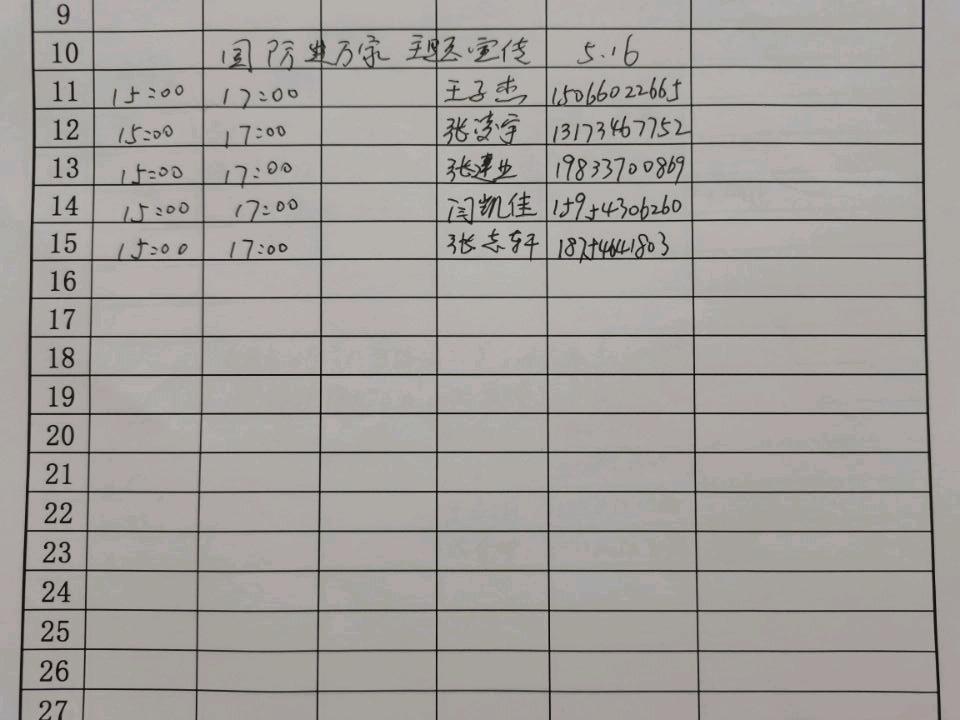 9
10 国防进万家 主题宣传 5.16
11 15:00 17:00 王子杰 15066022665
12 15:00 17:00 张凌宇 13173467752
13 15:00 17:00 张建业 19833700869
14 15:00 17:00 闫凯佳 15954306260
15 15:00 17:00 张志轩 18254641803
16
17
18
19
20
21
22
23
24
25
26
27